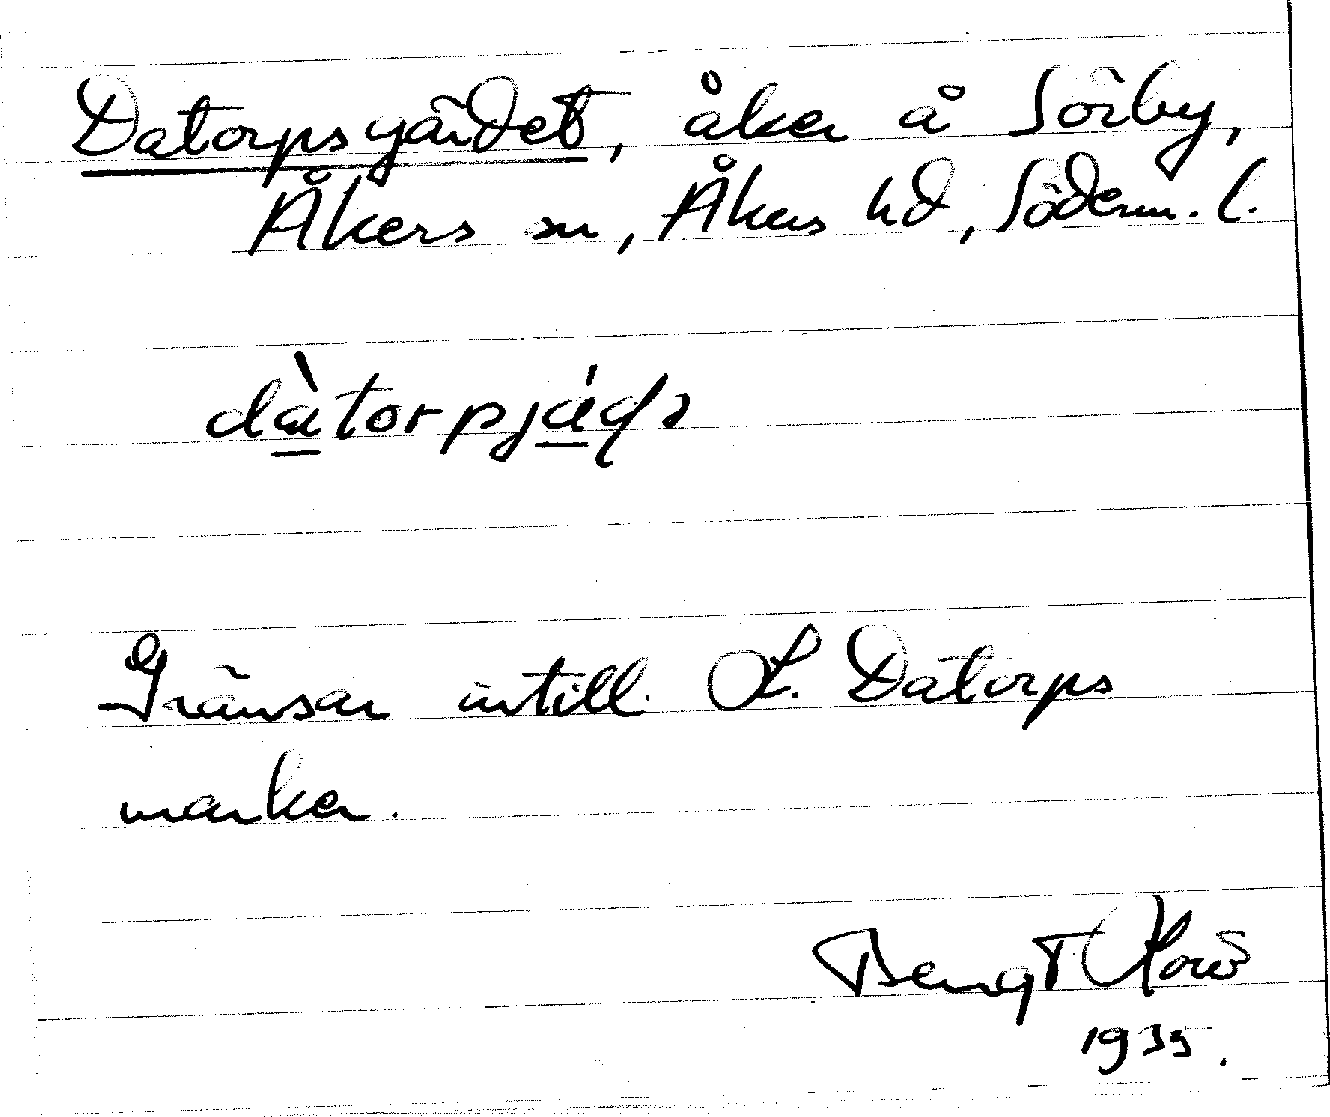 Datorpsgärdet, åker å Sörby,
Åkers sn, Åkers hd, Söderm. l.
dàtorpjá
Gränsar intill L. Datorps
marker.
Bengt
1935.